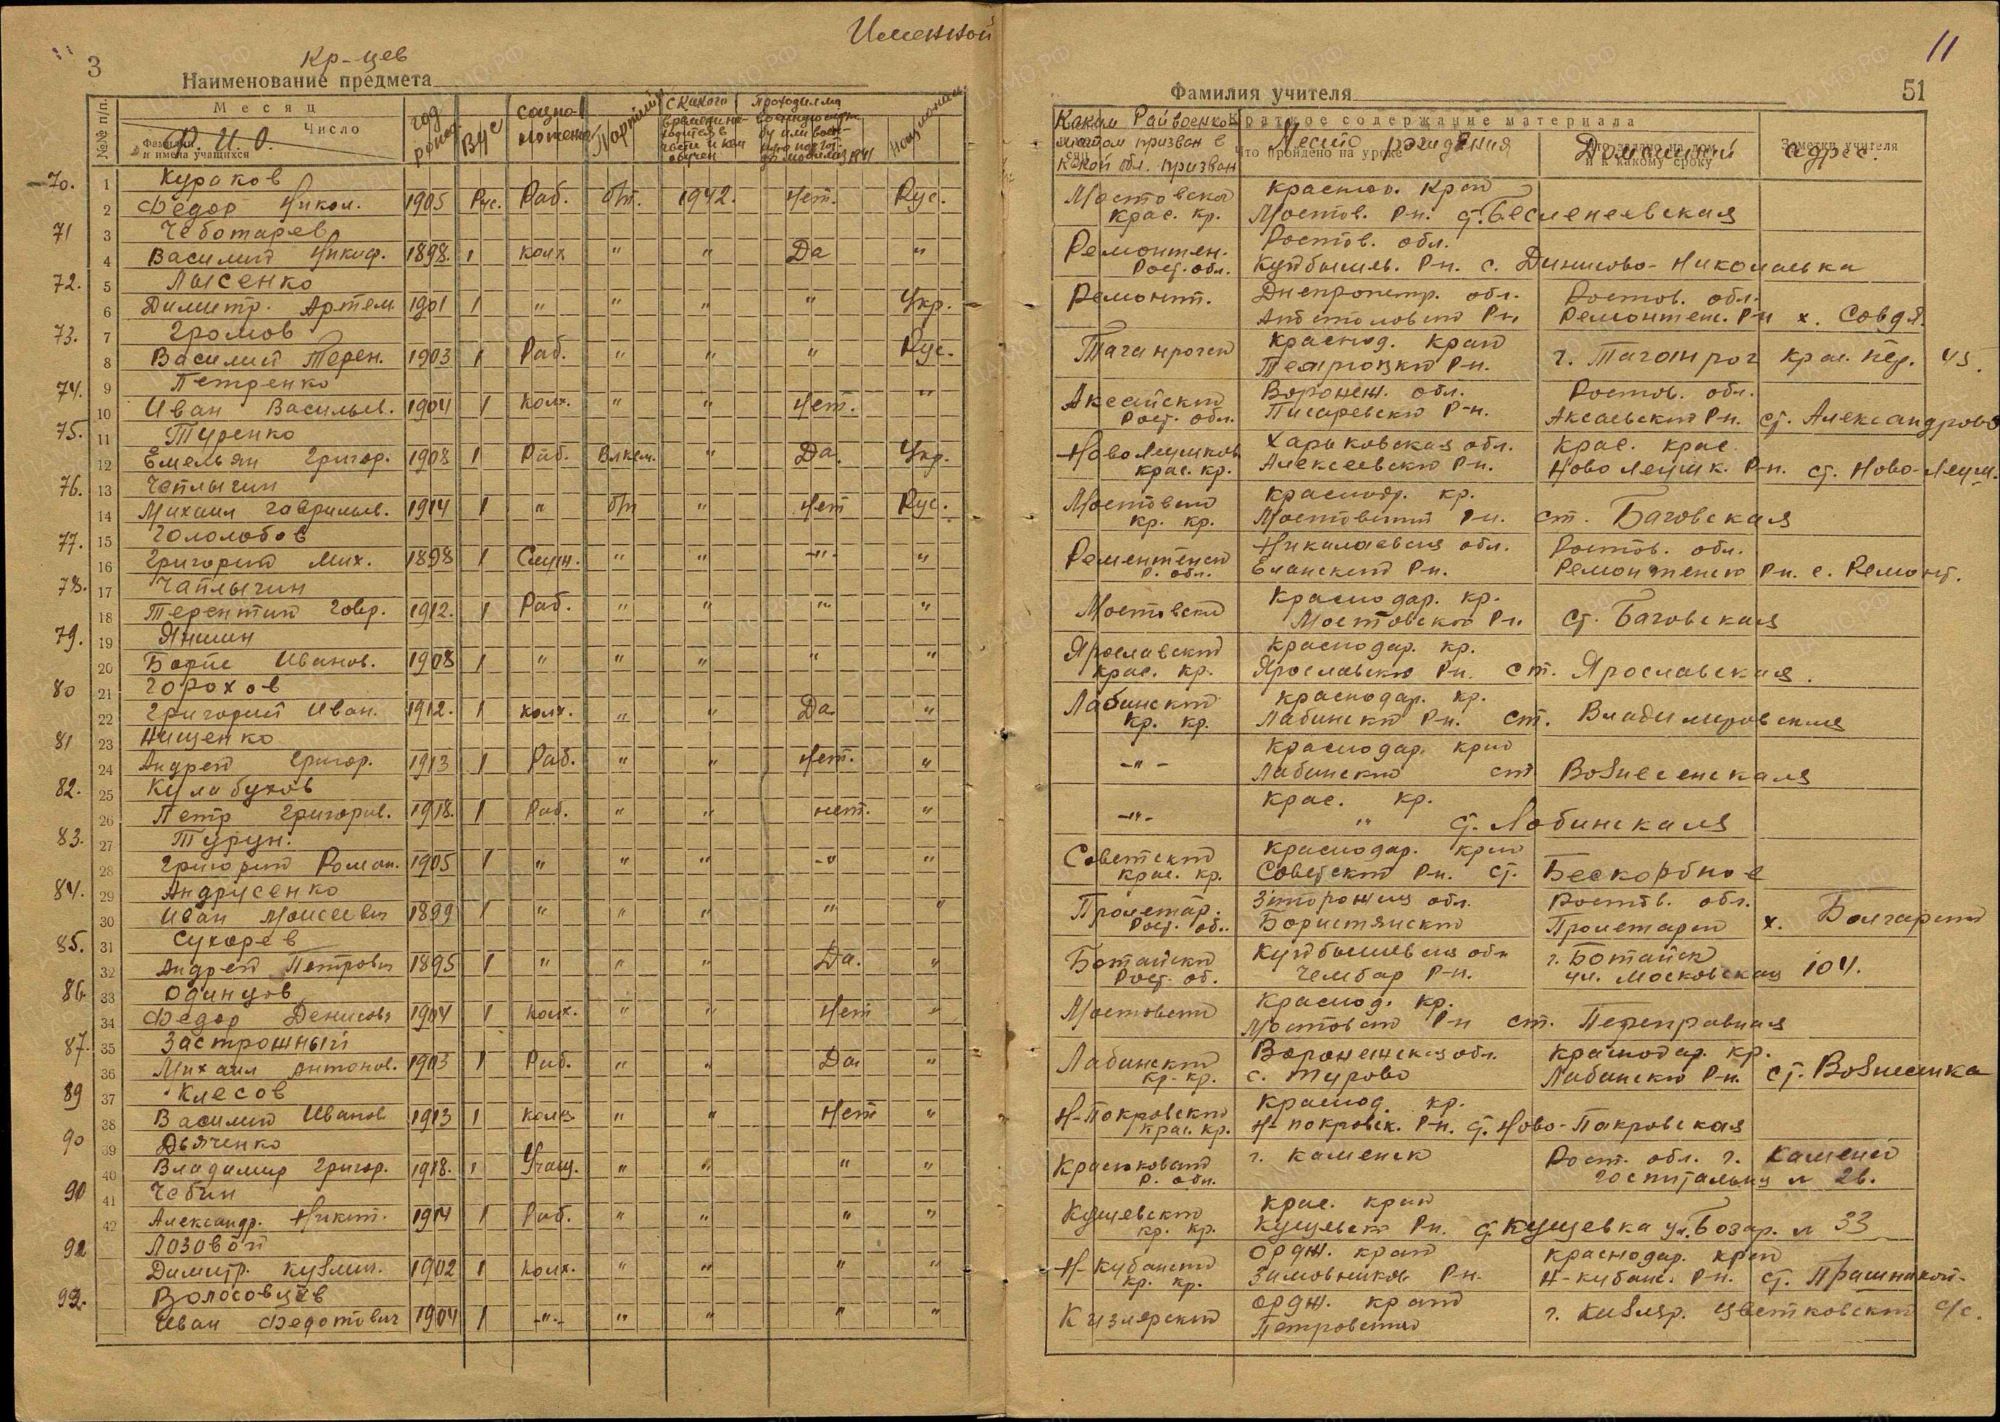 Именной
3
Кр-цев
Наименование предмета
№№ п/п.
Месяц
Число
Ф. И. О.
Фамилии
и имена учащихся
год рожд.
ВУС
Партийн
70. 1 Кураков
2 Федор Никол. 1905 Рус. Раб. б/п. 1942. Нет. Рус.
71 3 Чеботарев
4 Василий Никиф. 1898. 1 колх " " Да "
72. 5 Лысенко
6 Димитр. Артем 1901 1 " " " " Укр.
73. 7 Громов
8 Василий Терен. 1903 1 Раб. " " " Рус.
74. 9 Петренко
10 Иван Васильев. 1904 1 колх. " " Нет. "
75. 11 Туренко
12 Емельян Григор. 1908 1 Раб. Влксм. " Да. Укр.
76. 13 Чеплыгин
14 Михаил Гаврильев. 1914 1 " б/п " Нет Рус.
77. 15 Гололобов
16 Григорий Мих. 1898 1 Служ. " " -"- "
78. 17 Чаплыгин
18 Терентий Говр. 1912. 1 Раб. " " " "
79. 19 Яншин
20 Борис Иванов. 1908 1 " " " " "
80 21 Горохов
22 Григорий Иван. 1912. 1 колх. " " Да. "
81 23 Нищенко
24 Андрей Григор. 1913 1 Раб. " " Нет. "
82. 25 Кулабухов
26 Петр Григорив. 1918. 1 Раб. " " нет. "
83. 27 Турун.
28 Григорий Роман. 1905 1 " " " -"- "
84. 29 Андрусенко
30 Иван Моисеевич 1899 1 " " " " "
85. 31 Сухорев
32 Андрей Петрович 1895 1 " " " Да. "
86. 33 Одинцов
34 Федор Денисовч 1904 1 колх. " " Нет "
87. 35 Застрожный
36 Михаил Антонов. 1903 1 Раб. " " Да. "
89 37 Клесов
38 Василий Иванов 1913 1 колх " " Нет "
90 39 Дьяченко
40 Владимир Григор. 1918. 1 Учащ. " " " "
90 41 Чебин
42 Александр. Никит. 1914 1 Раб. " " " "
92 Лозовой
Димитр. Кузмич. 1902 1 колх. " " " "
93. Волосовцев
Иван Федотович 1904 1 -"- " " " "
11
Фамилия учителя
51
Каким Райвоенко-
матом призван в
какой обл. призван
Краткое содержание материала
Что пройдено на уроке
Место рождения
Домашний адрес.
и к какому сроку
Заметки учителя
Мостовской Краснод. Край
Крас. кр. Мостов. Р-н. ст. Бесленеевская
Ремонтен. Ростов. обл.
Рост. обл. Куйбышив. Р-н. с. Динисово-Николаевка
Ремонт. Днепропетр. обл. Ростов. обл.
Апостоловский Р-н Ремонтен. Р-н х.
Таганрогский Краснод. край
Р-н. г. Таганрог Крас. пер. 43.
Аксайский Воронеж. обл. Ростов. обл.
Рост. обл. Писаревский Р-н. Аксаевский Р-н. ст. Александровс
Новолеушков Харьковская обл. Крас. крае.
крас. кр. Алексеевский Р-н. Новолеушк. Р-н. ст. Ново-Леуш.
Мостовский Краснодр. кр.
кр. кр. Мостовский Р-н. ст. Баговская
Рементенский Николаевская обл. Ростов. обл.
Р. обл. Еланский Р-н. Ремонтенский Р-н. с. Ремонт.
Мостовский Краснодар. кр.
Мостовский Р-н ст. Баговская
Ярославский Краснодар. кр.
крас. кр. Ярославский Р-н. ст. Ярославская.
Лабинский Краснодар. кр.
кр. кр. Лабинский Р-н. ст. Владимировская
-"- Краснодар. край
Лабинский ст Вознесенская
-"- Крас. кр.
" ст. Лабинская
Советский Краснодар. край
Крас. кр. Советский Р-н. ст. Бескорбное
Пролетар. обл. Ростов. обл.
Рост. об. Пролетарский х. Болгарский
Батайский Куйбышевская обл г. Ботайск
Рост. об. Чембар Р-н. ул. Московская 104.
Мостовский Краснод. кр.
Мостовский Р-н ст. Переправная
Лабинский Воронежская обл. Краснодар. кр.
кр-кр. с. Турово Лабинский Р-н. ст. Вознесенка
Н-Покровский Краснод. кр.
Крас. кр. Н-покровск. Р-н. ст. Ново-Покровская
г. Каменск Рост. обл. г. Каменск
Р. обл. Госпитальная № 26.
Кущевский Крас. край
кр. кр. Кущевский Р-н. ст. Кущевка ул. Базар. № 33
Н-Кубанский Ордж. край Краснодар. край
кр. кр. Зимовников Р-н. Н-кубанс. Р-н. ст.
Кизлярский Ордж. край г. Кизляр. Цветковский с/с.
Петровский